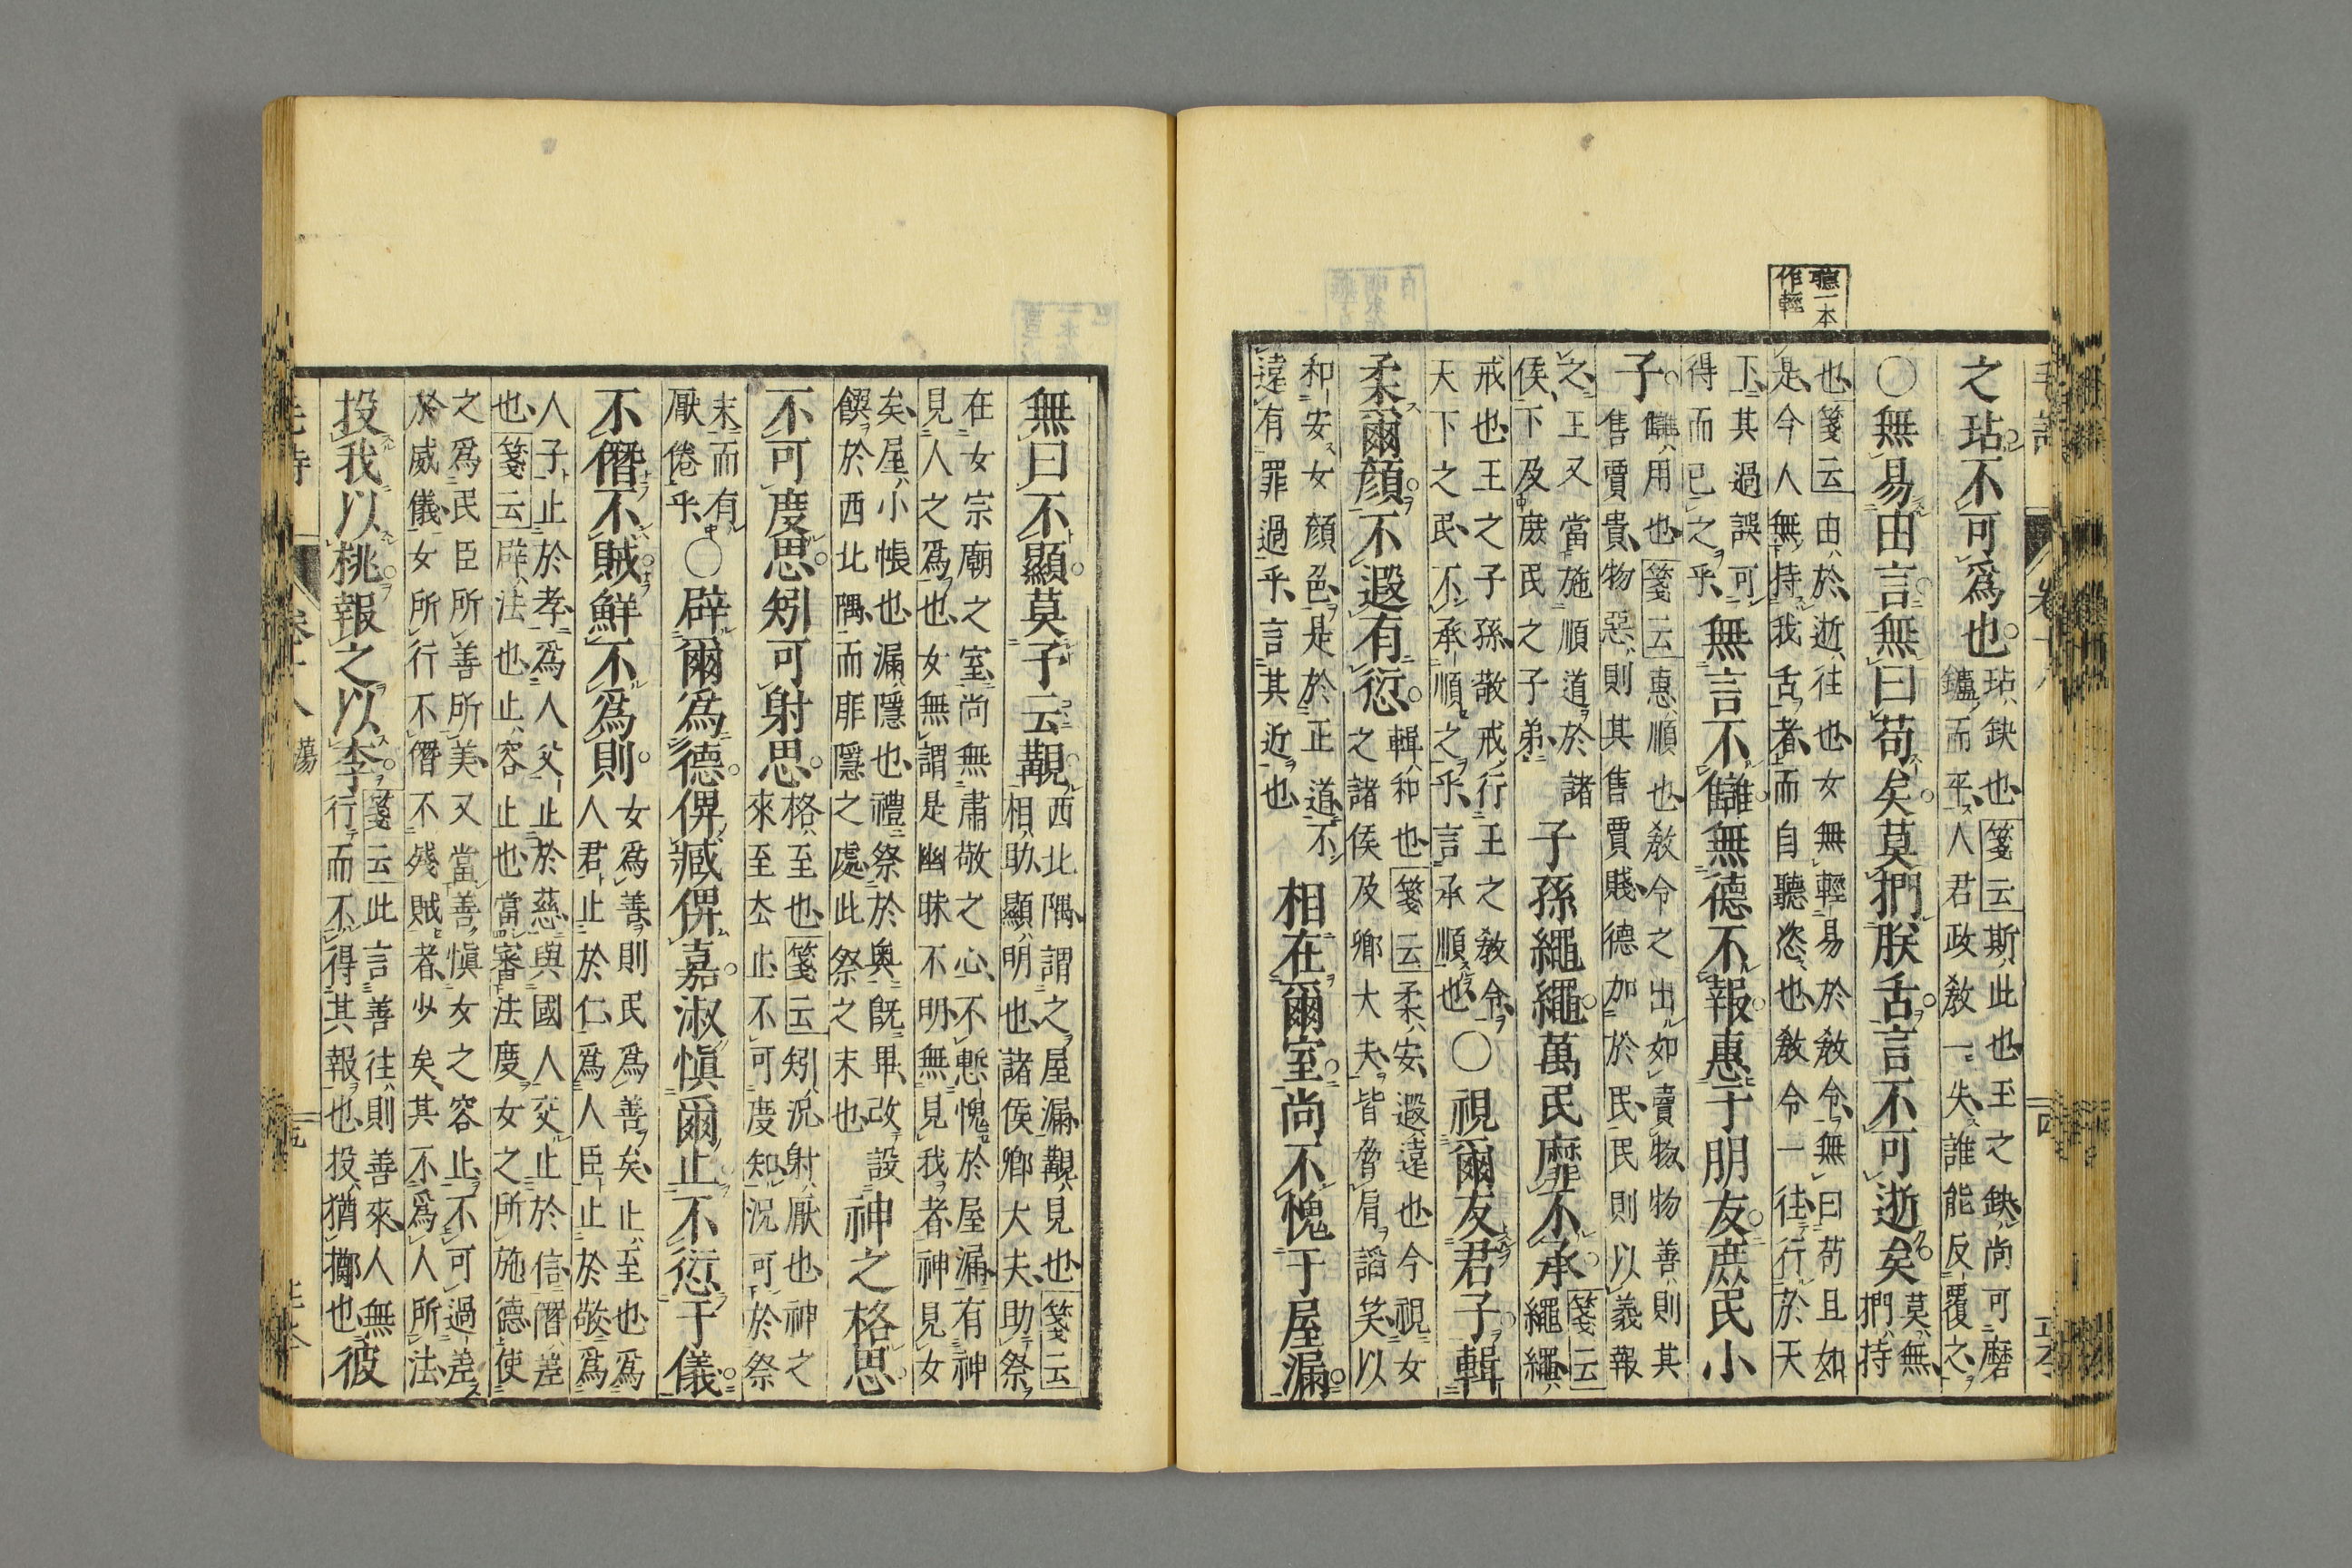 聽一本
作輕
之玷不可爲也玷缺也箋云斯此也王之缺尚可磨
鑢而平人君政敎一失誰能反覆之
〇無易由言無曰苟矣莫捫朕舌言不可逝矣莫無
捫持
也箋云由於逝往也女無輕易於敎令無曰苟且如
是今人無持我舌者而自聽恣也敎令一往行於天
下其過誤可
得而已之乎無言不讎無德不報惠于朋友庶民小
子讎用也箋云惠順也敎令之出如賣物物善則其
售賈貴物惡則其售賈賤德加於民民則以義報
之王又當施順道於諸
侯下及庶民之子弟子孫繩繩萬民靡不承箋云
繩繩
戒也王之子孫敬戒行王之敎令
天下之民不承順之乎言承順也〇視爾友君子輯
柔爾顏不遐有愆輯和也箋云柔安遐遠也今視女
之諸侯及鄉大夫皆脅肩謟笑以
和安女顏色是於正道不
遠有罪過乎言其近也相在爾室尚不愧于屋漏
無曰不顯莫予云覯西北隅謂之屋漏覯見也箋云
相助顯明也諸侯鄉大夫助祭
在女宗廟之室尚無肅敬之心不慙愧於屋漏有神
見人之爲也女無謂是幽昧不明無見我者神見女
矣屋小帳也漏隱也禮祭於奥旣畢改設
饌於西北隅而厞隱之處此祭之末也神之格思
不可度思矧可射思格至也箋云矧況射厭也神之
來至去止不可度知況可於祭
末而有
厭倦乎〇辟爾爲德俾臧俾嘉淑愼爾止不愆于儀
不僭不賊鮮不爲則女爲善則民爲善矣止至也爲
人君止於仁爲人臣止於敬爲
人子止於孝爲人父止於慈與國人交止於信僭差
也箋云辟法也止容止也當審法度女之所施德使
之爲民臣所善所美又當善愼女之容止不可過差
於威儀女所行不僭不殘賊者少矣其不爲人所法
投我以桃報之以李箋云此言善往則善來人無
行而不得其報也投猶擲也彼